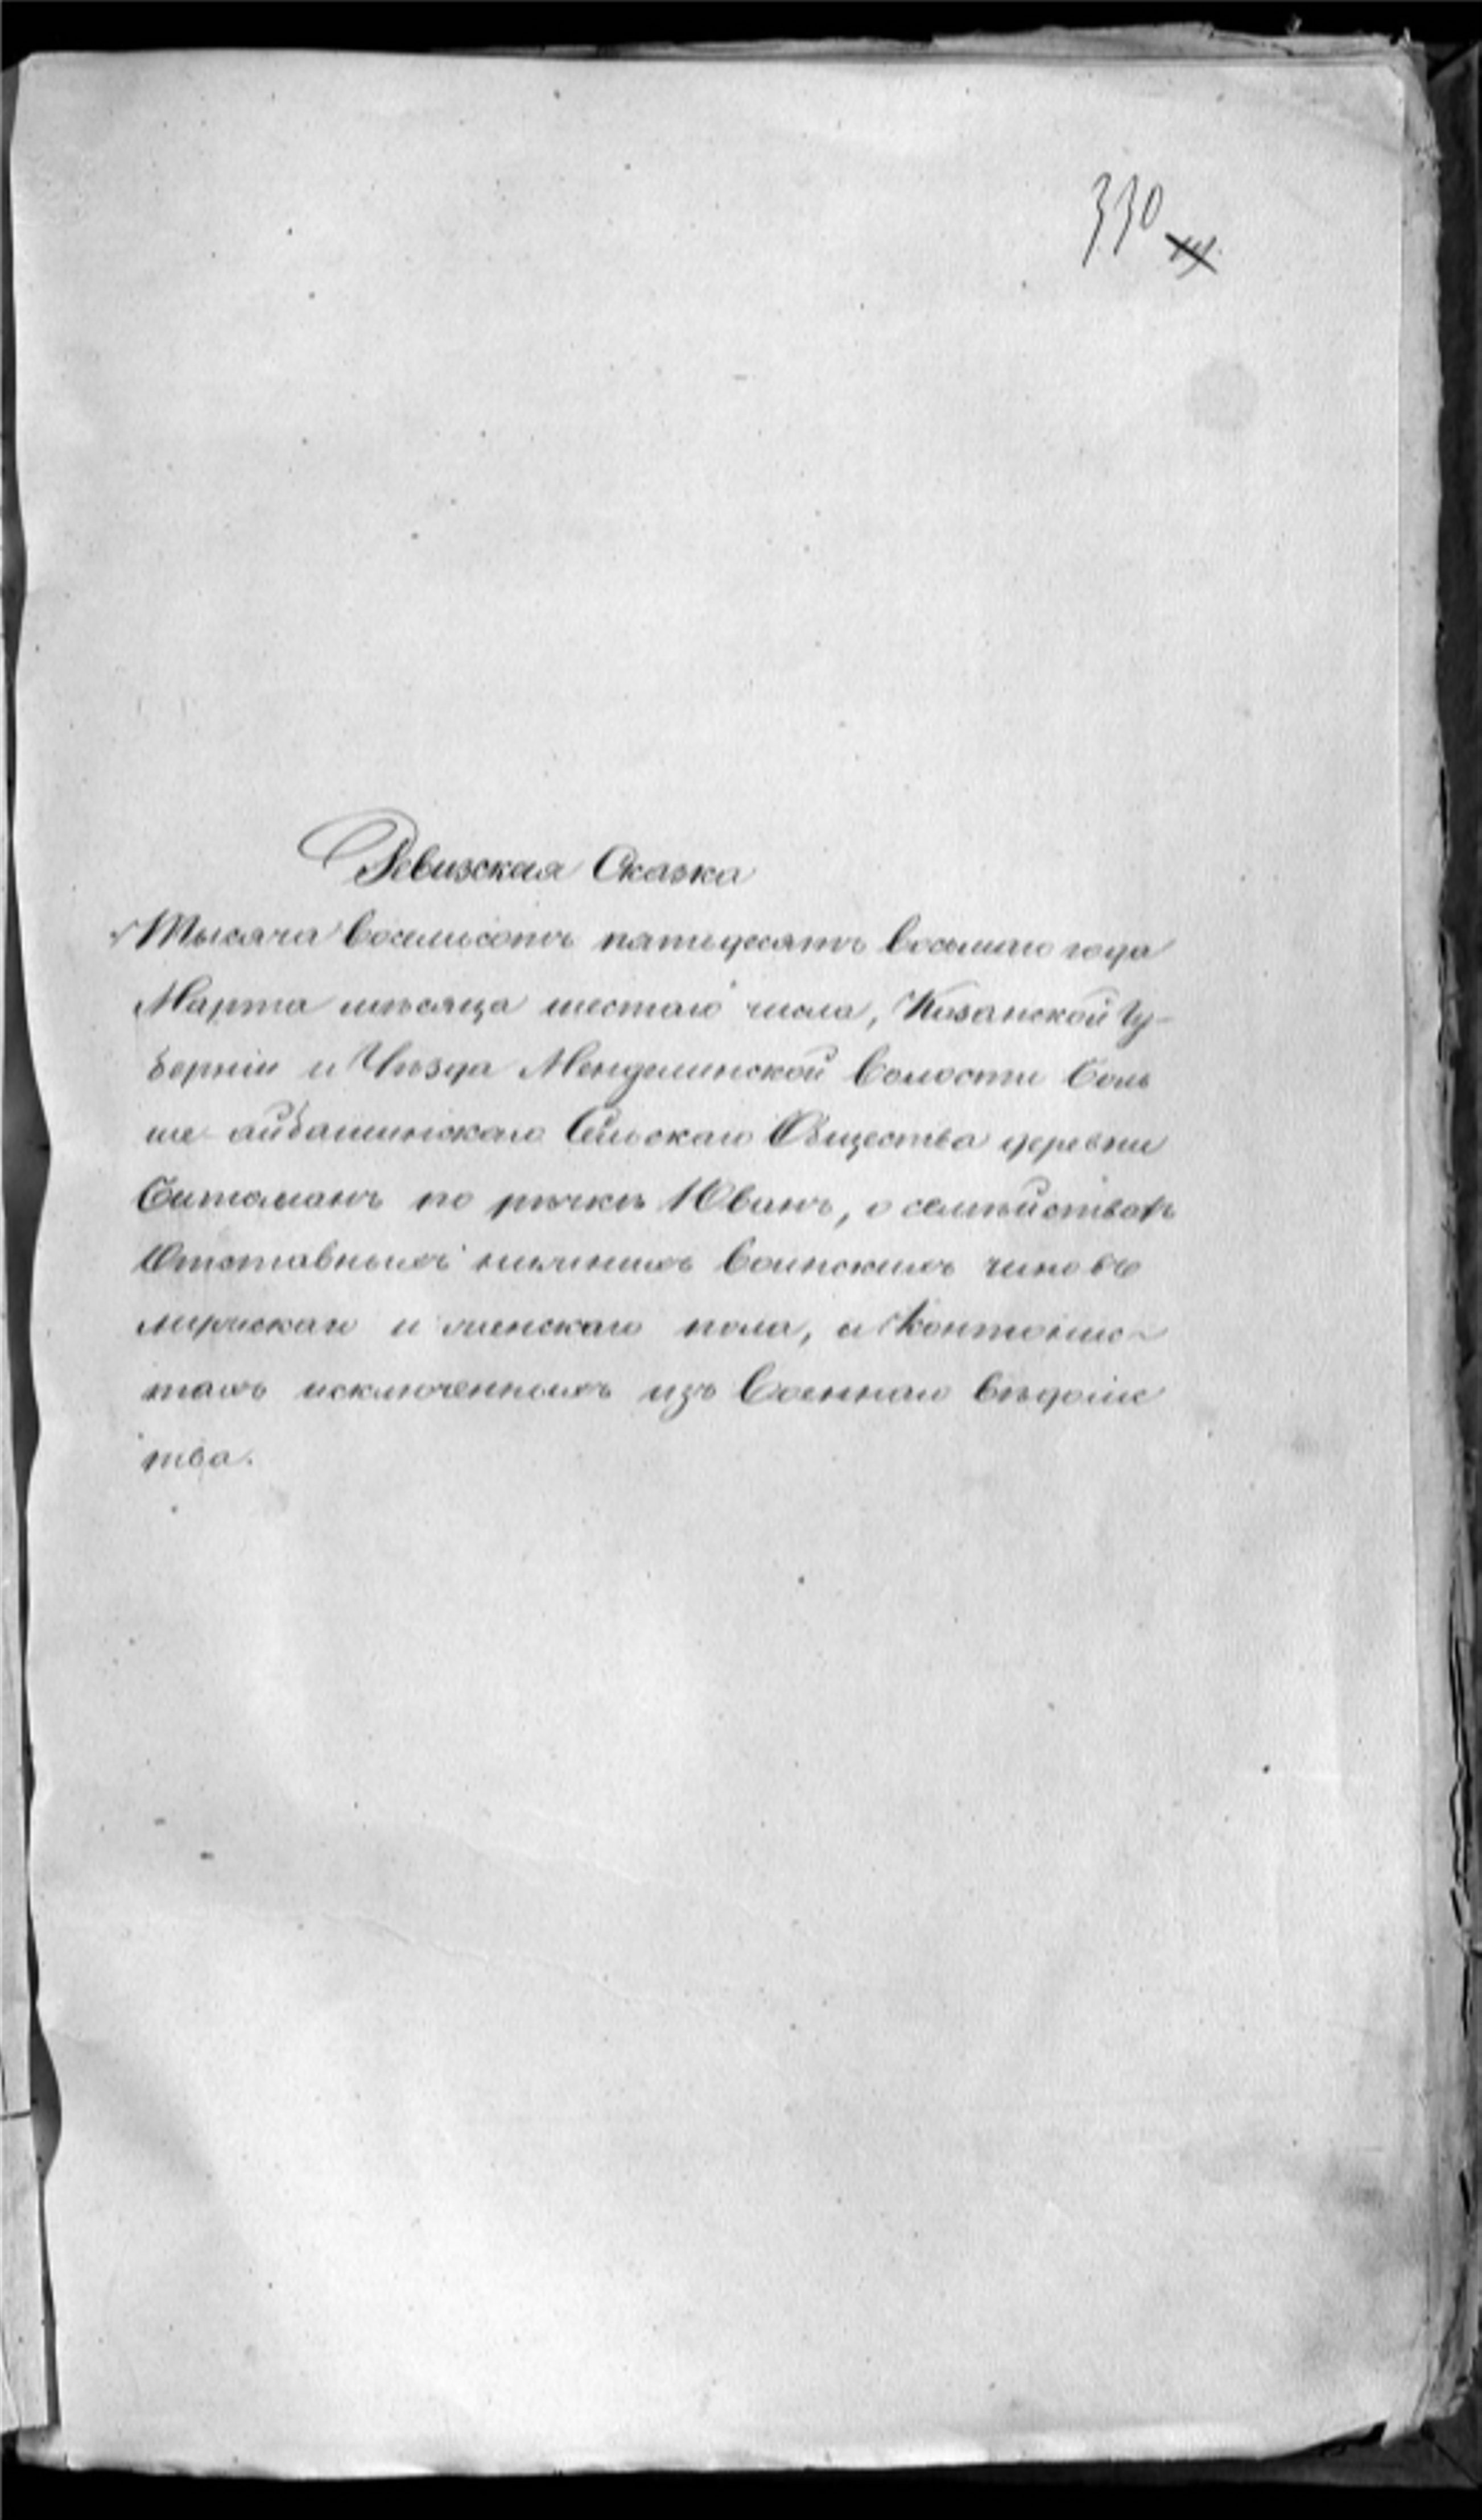 330
Ревизская Сказка
Тысяча восемьсотъ пятидесятъ восьмаго года
Марта мѣсяца шестаго числа, Казанской Гу-
берніи и Уѣзда Менделинской волости Боль
ше айбашинскаго Сельскаго Общества деревни
по рѣчкѣ Юванъ, о семѣйствахъ
Отставныхъ нижнихъ воинскихъ чиновъ
мужскаго и женскаго пола, и Контонис-
тахъ исключенныхъ изъ Военнаго вѣдомс
тва.